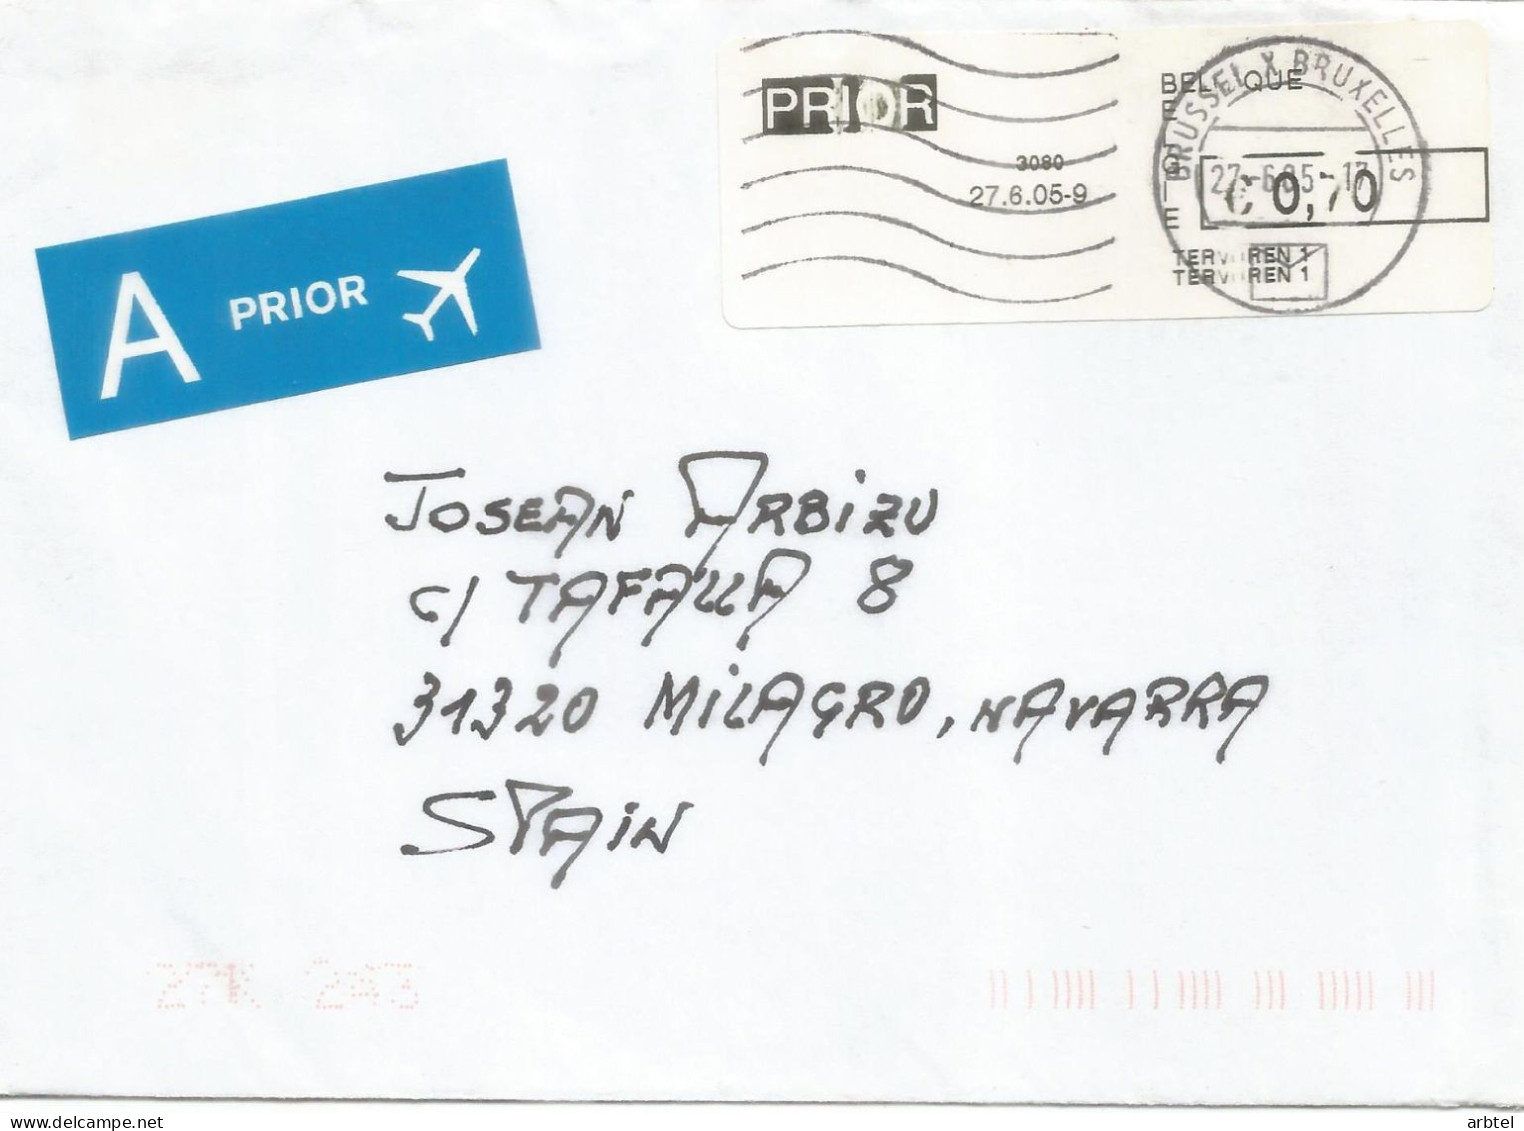 PRIOR
3080
27.6.05-9
BELGIQUE
BELGIE
BRUSSEL X BRUXELLES
27-6.05-17
€ 0,70
TERVUREN 1
TERVUREN 1
A PRIOR
JOSEAN ARBIZU
C/ TAFALLA 8
31320 MILAGRO, NAVARRA
SPAIN
27K 243
arbtel